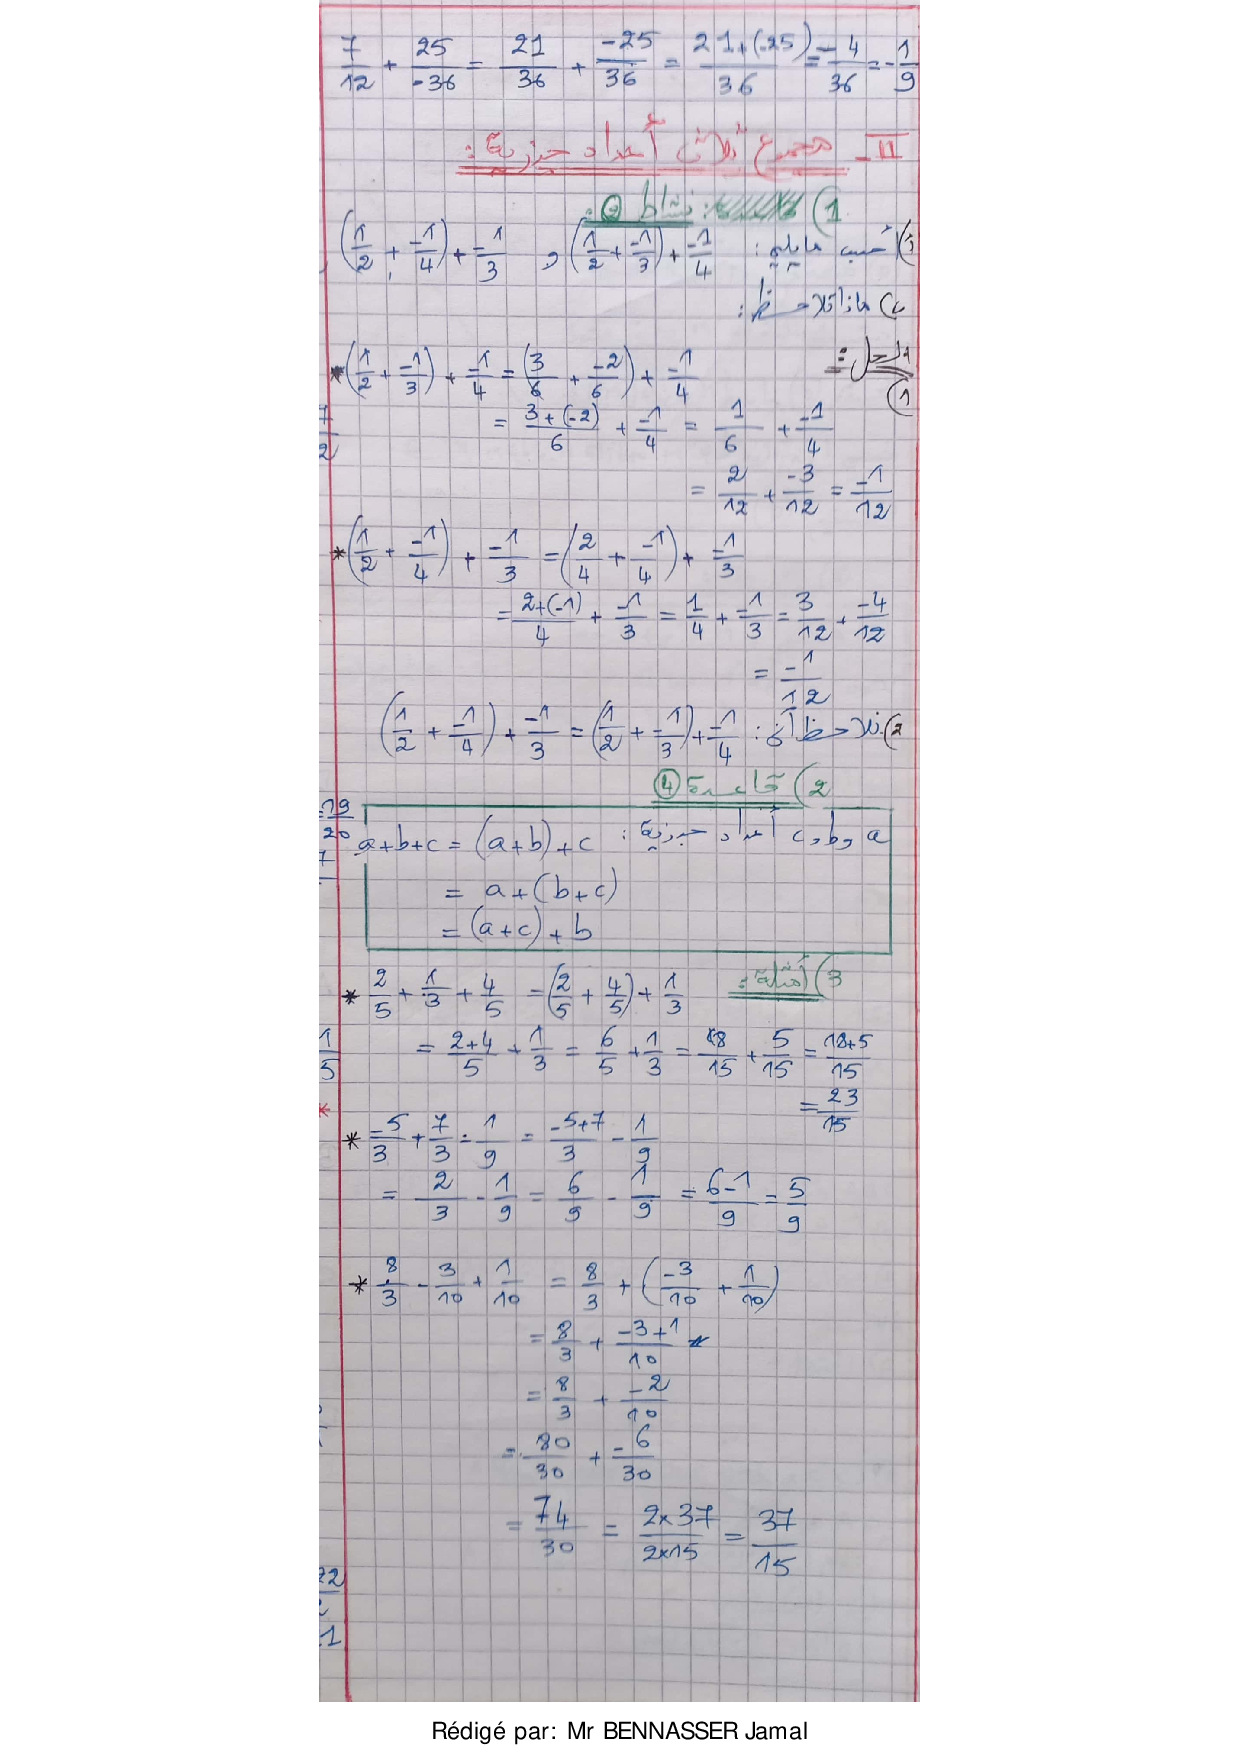 7/12 + 25/-36 = 21/36 + -25/36 = 21+(-25)/36 = -4/36 = -1/9
II - مجموع ثلاث أعداد جذرية :
1) نشاط ③ :
1) أحسب مايلي : (1/2 + -1/3) + -1/4 و (1/2 + -1/4) + -1/3
2) ماذا تلاحظ :
الحل :
1)
* (1/2 + -1/3) + -1/4 = (3/6 + -2/6) + -1/4
= 3+(-2)/6 + -1/4 = 1/6 + -1/4
= 2/12 + -3/12 = -1/12
* (1/2 + -1/4) + -1/3 = (2/4 + -1/4) + -1/3
= 2+(-1)/4 + -1/3 = 1/4 + -1/3 = 3/12 + -4/12
= -1/12
2) نلاحظ أن : (1/2 + -1/4) + -1/3 = (1/2 + -1/3) + -1/4
2) قاعدة ④
a و b و c أعداد جذرية : a+b+c = (a+b)+c
= a+(b+c)
= (a+c)+b
3) أمثلة :
* 2/5 + 1/3 + 4/5 = (2/5 + 4/5) + 1/3
= 2+4/5 + 1/3 = 6/5 + 1/3 = 18/15 + 5/15 = 18+5/15
= 23/15
* -5/3 + 7/3 - 1/9 = -5+7/3 - 1/9
= 2/3 - 1/9 = 6/9 - 1/9 = 6-1/9 = 5/9
* 8/3 - 3/10 + 1/10 = 8/3 + (-3/10 + 1/10)
= 8/3 + -3+1/10
= 8/3 + -2/10
= 80/30 + -6/30
= 74/30 = 2×37/2×15 = 37/15
Rédigé par: Mr BENNASSER Jamal